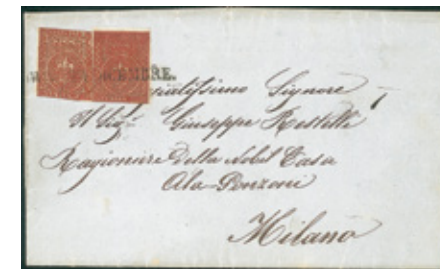 EMBRE.
Signore
Il Sig.r Giuseppe Restelli
Ragioniere Della Nobil Casa
Ala-Ponzoni
Milano